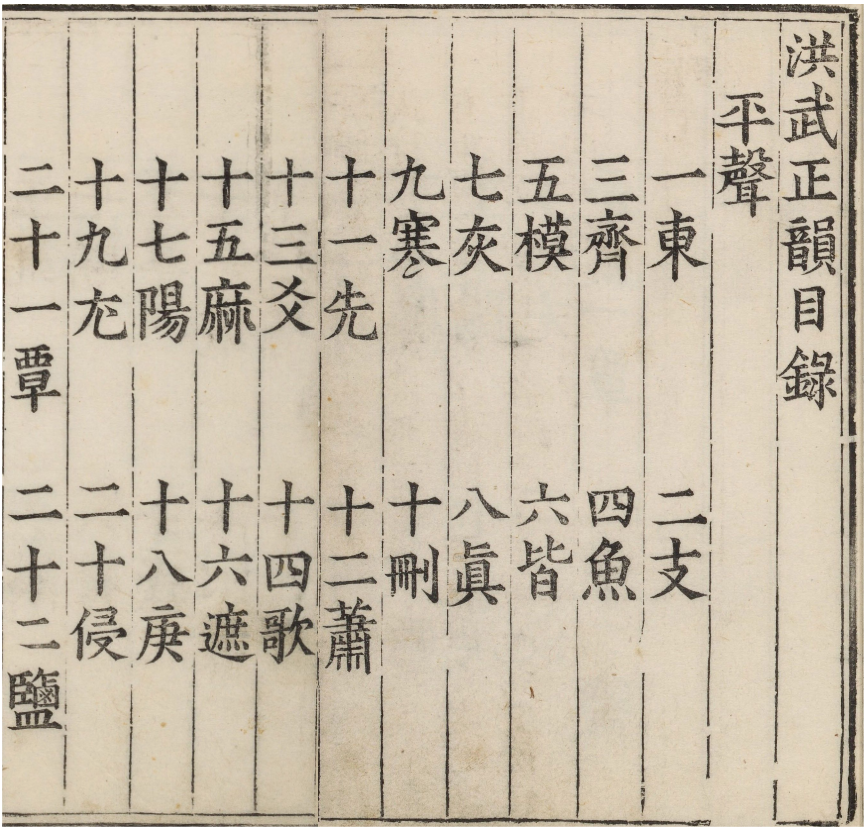 洪武正韻目錄
平聲
一東 二支
三齊 四魚
五模 六皆
七灰 八眞
九寒 十刪
十一先 十二蕭
十三爻 十四歌
十五麻 十六遮
十七陽 十八庚
十九尤 二十侵
二十一覃 二十二鹽